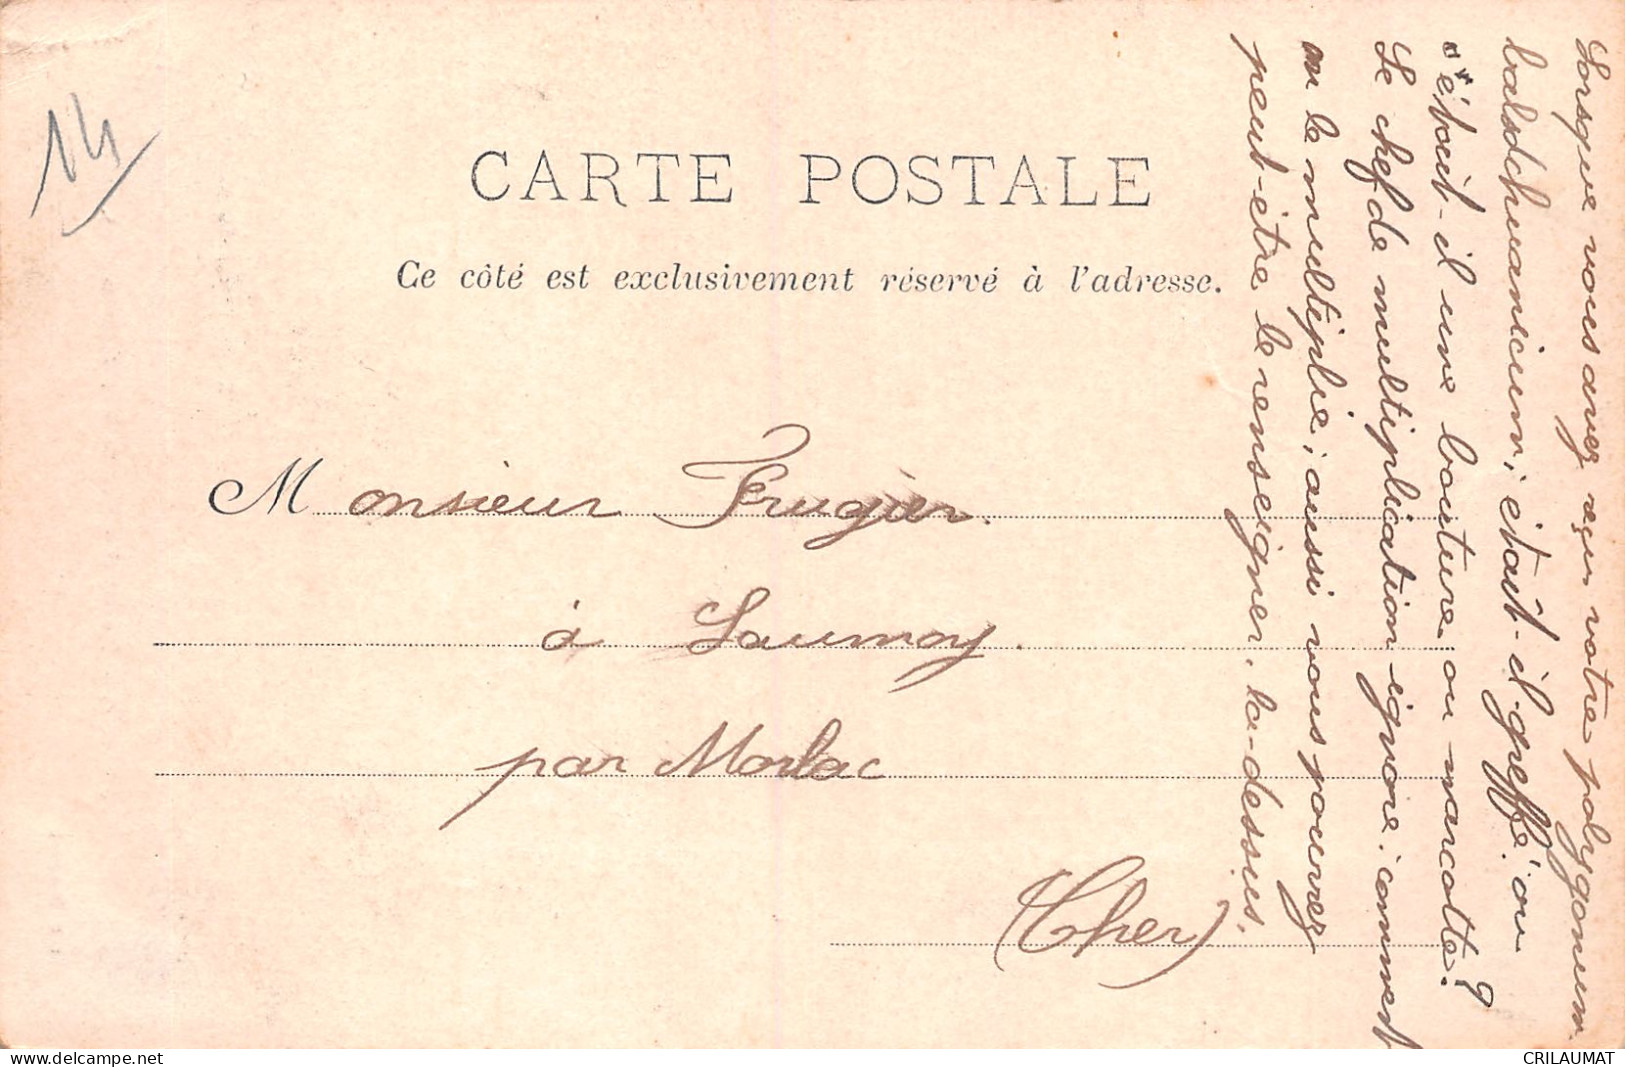 14
CARTE POSTALE
Ce côté est exclusivement réservé à l'adresse.
Monsieur Frugier.
à Saumoy.
par Morlac
(Cher)
Lorsque vous avez reçu votre polygonum
baldschuanicum, était-il greffé, ou
était-il une bouture ou marcotte?
Le chef de multiplication ignore comment
on le multiplie, aussi vous pouvez
peut-être le renseigner là-dessus.
CRILAUMAT